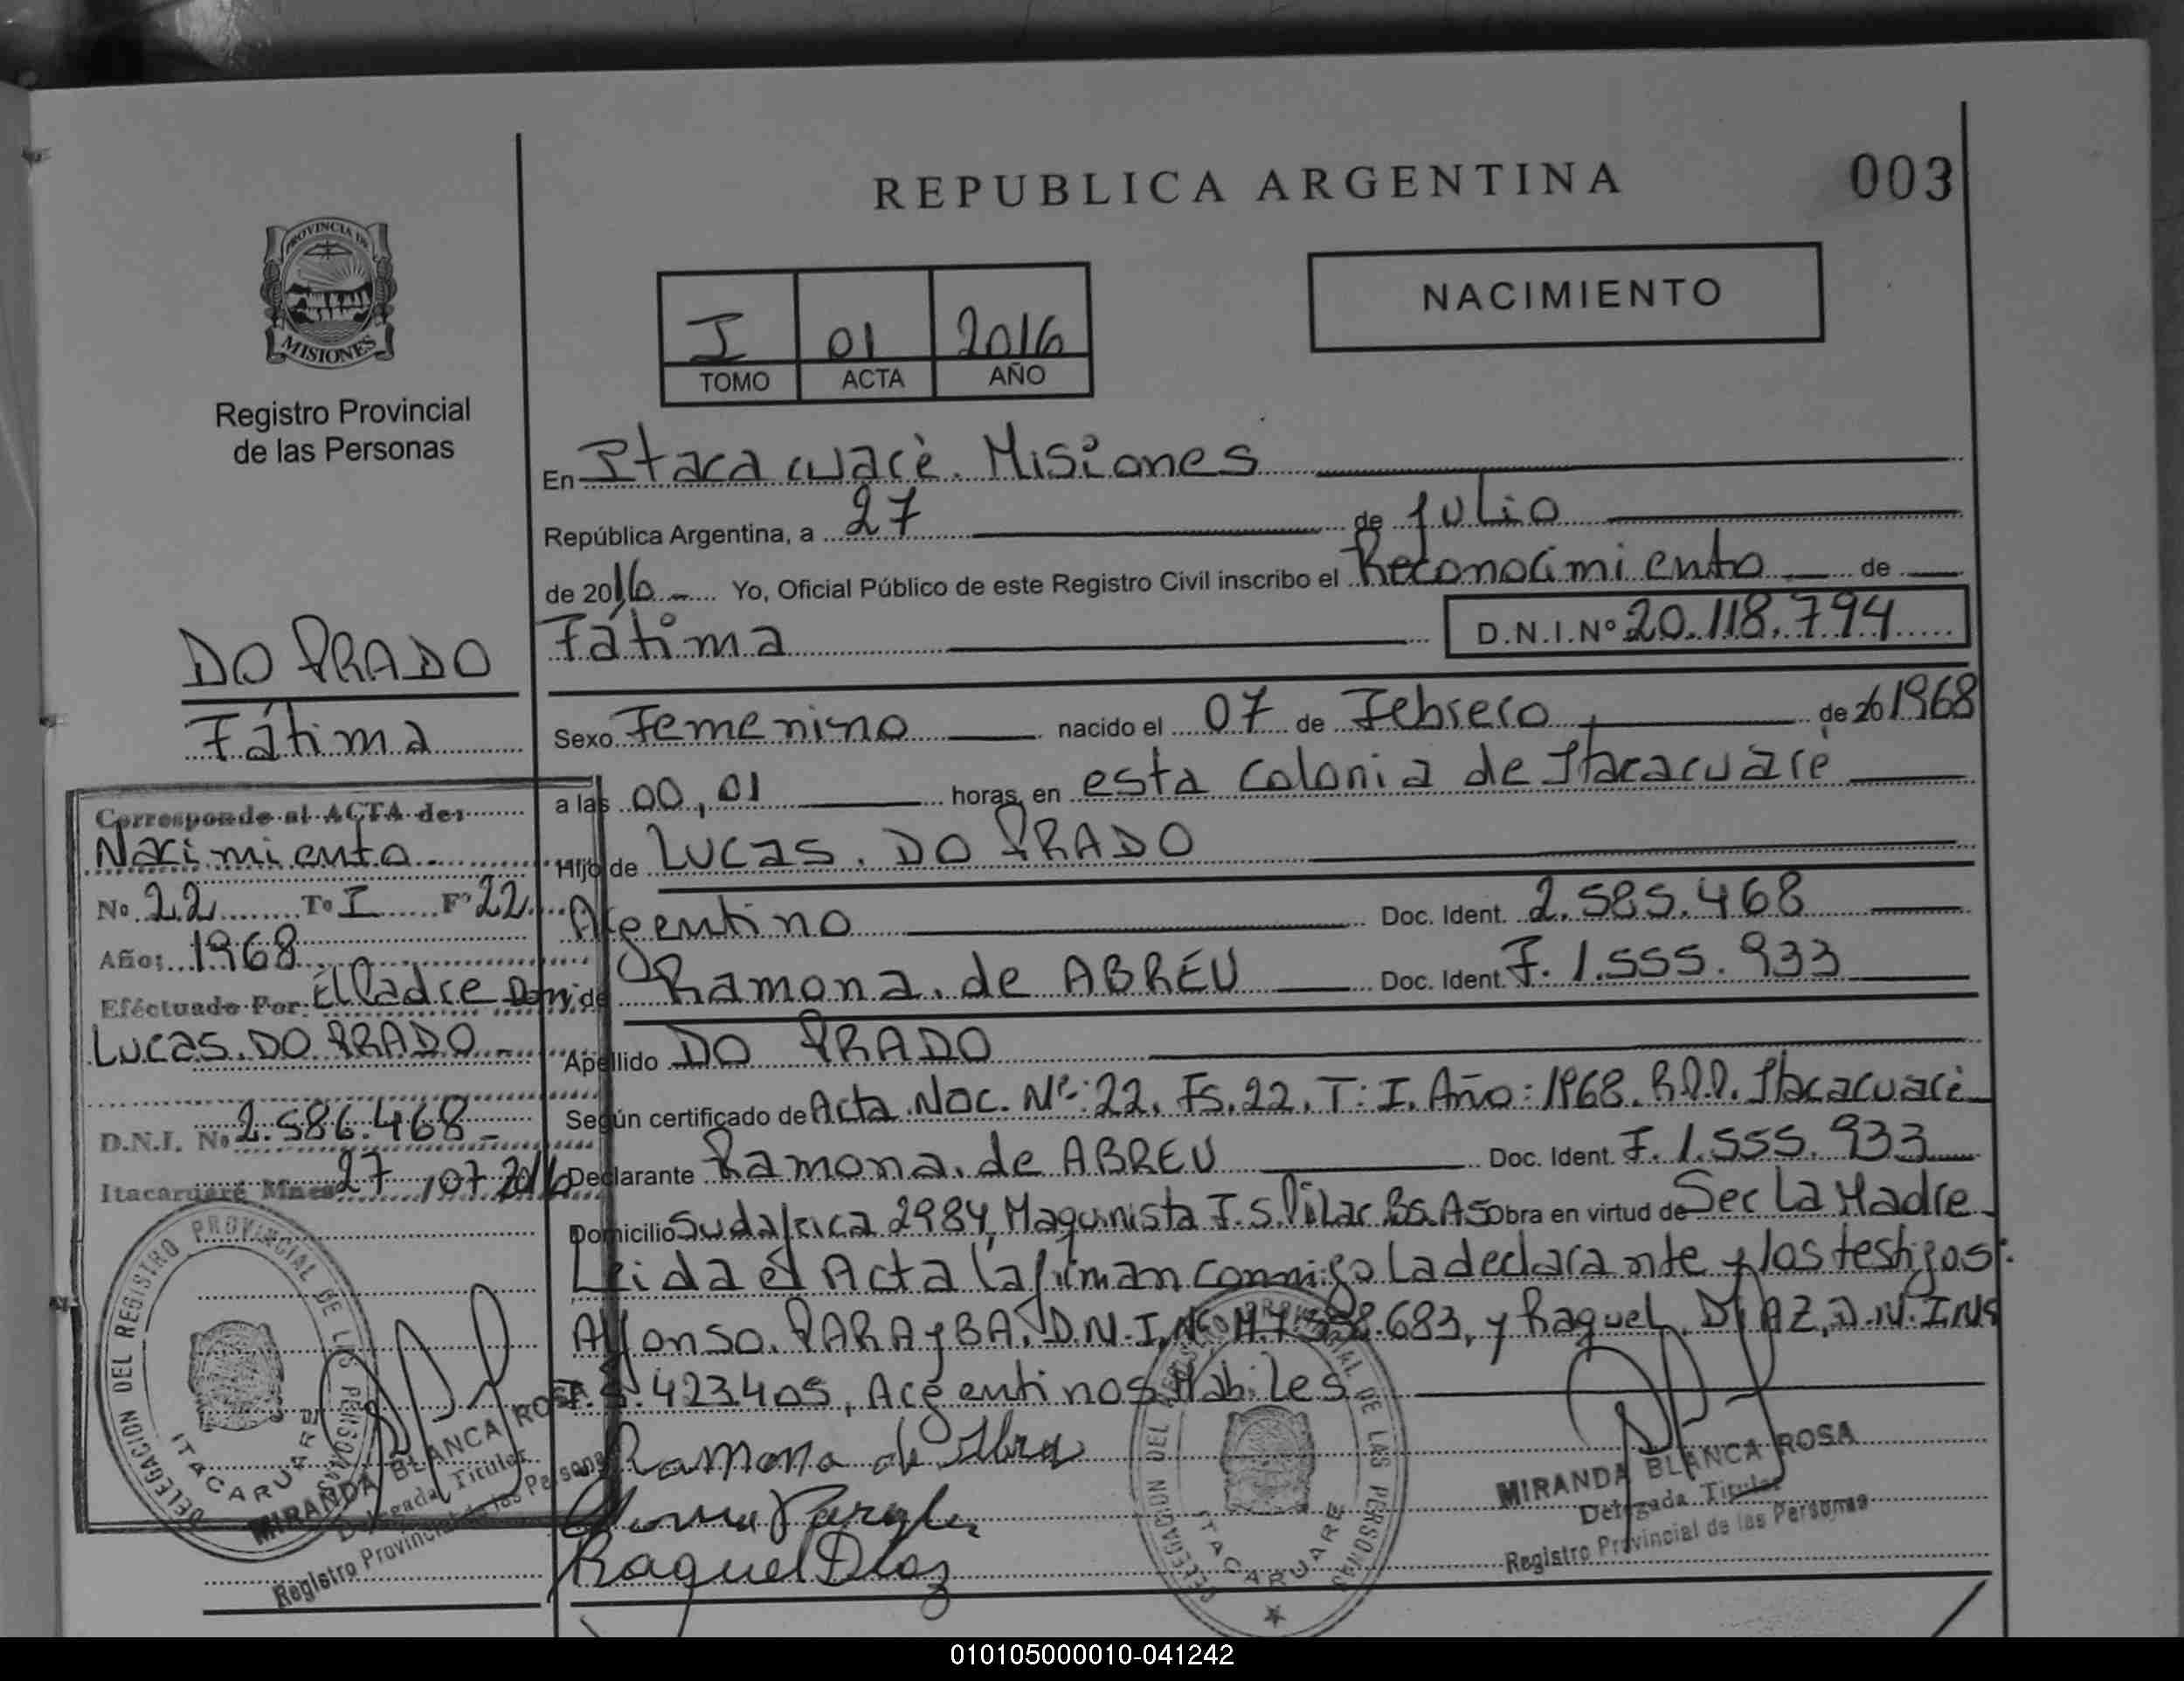 REPUBLICA ARGENTINA
003
PROVINCIA DE
MISIONES
Registro Provincial
de las Personas
NACIMIENTO
I 01 2016
TOMO ACTA AÑO
En Itacacuaré. Misiones
República Argentina, a 27 de Julio
de 2016 Yo, Oficial Público de este Registro Civil inscribo el Reconocimiento de
Fátima D.N.I.Nº 20.118.794
DO PRADO
Fátima
Sexo Femenino nacido el 07 de Febrero de 20 1968
a las 00,01 horas, en esta Colonia de Itacacuaré
Hijo de Lucas. DO PRADO
Argentino Doc. Ident. 2.585.468
Ramona. de ABREU Doc. Ident. F. 1.555.933
Apellido DO PRADO
Según certificado de Acta Nac. Nº: 22. Fs. 22. T: I. Año: 1968. R.P.P. Itacacuaré
Declarante Ramona. de ABREU Doc. Ident. F. 1.555.933
Domicilio Sudafrica 2984, Maquinista F. S. Pilar. Bs. As Obra en virtud de Ser La Madre
Leida el Acta la firman conmigo La declarante y los testigos:
Alfonso. PARAYBA. D.N.I. Nº M. 7.558.683, y Raquel. DIAZ, D.N.I Nº
F. 5.423405, Argentinos Habiles
Ramona de Abreu
Raquel Diaz
Corresponde al ACTA de:
Nacimiento
Nº 22 Tº I Fº 22
Año: 1968
Eféctuado Por: El Padre Don
Lucas. DO PRADO
D.N.I. Nº 2.586.468
Itacaruaré Mnes 27/07 2016
DELEGACION DEL REGISTRO PROVINCIAL DE LAS PERSONAS
ITACARUARE
MIRANDA BLANCA ROSA
Delegada Titular
Registro Provincial de las Personas
DELEGACION DEL REGISTRO PROVINCIAL DE LAS PERSONAS
ITACARUARE
MIRANDA BLANCA ROSA
Delegada Titular
Registro Provincial de las Personas
010105000010-041242